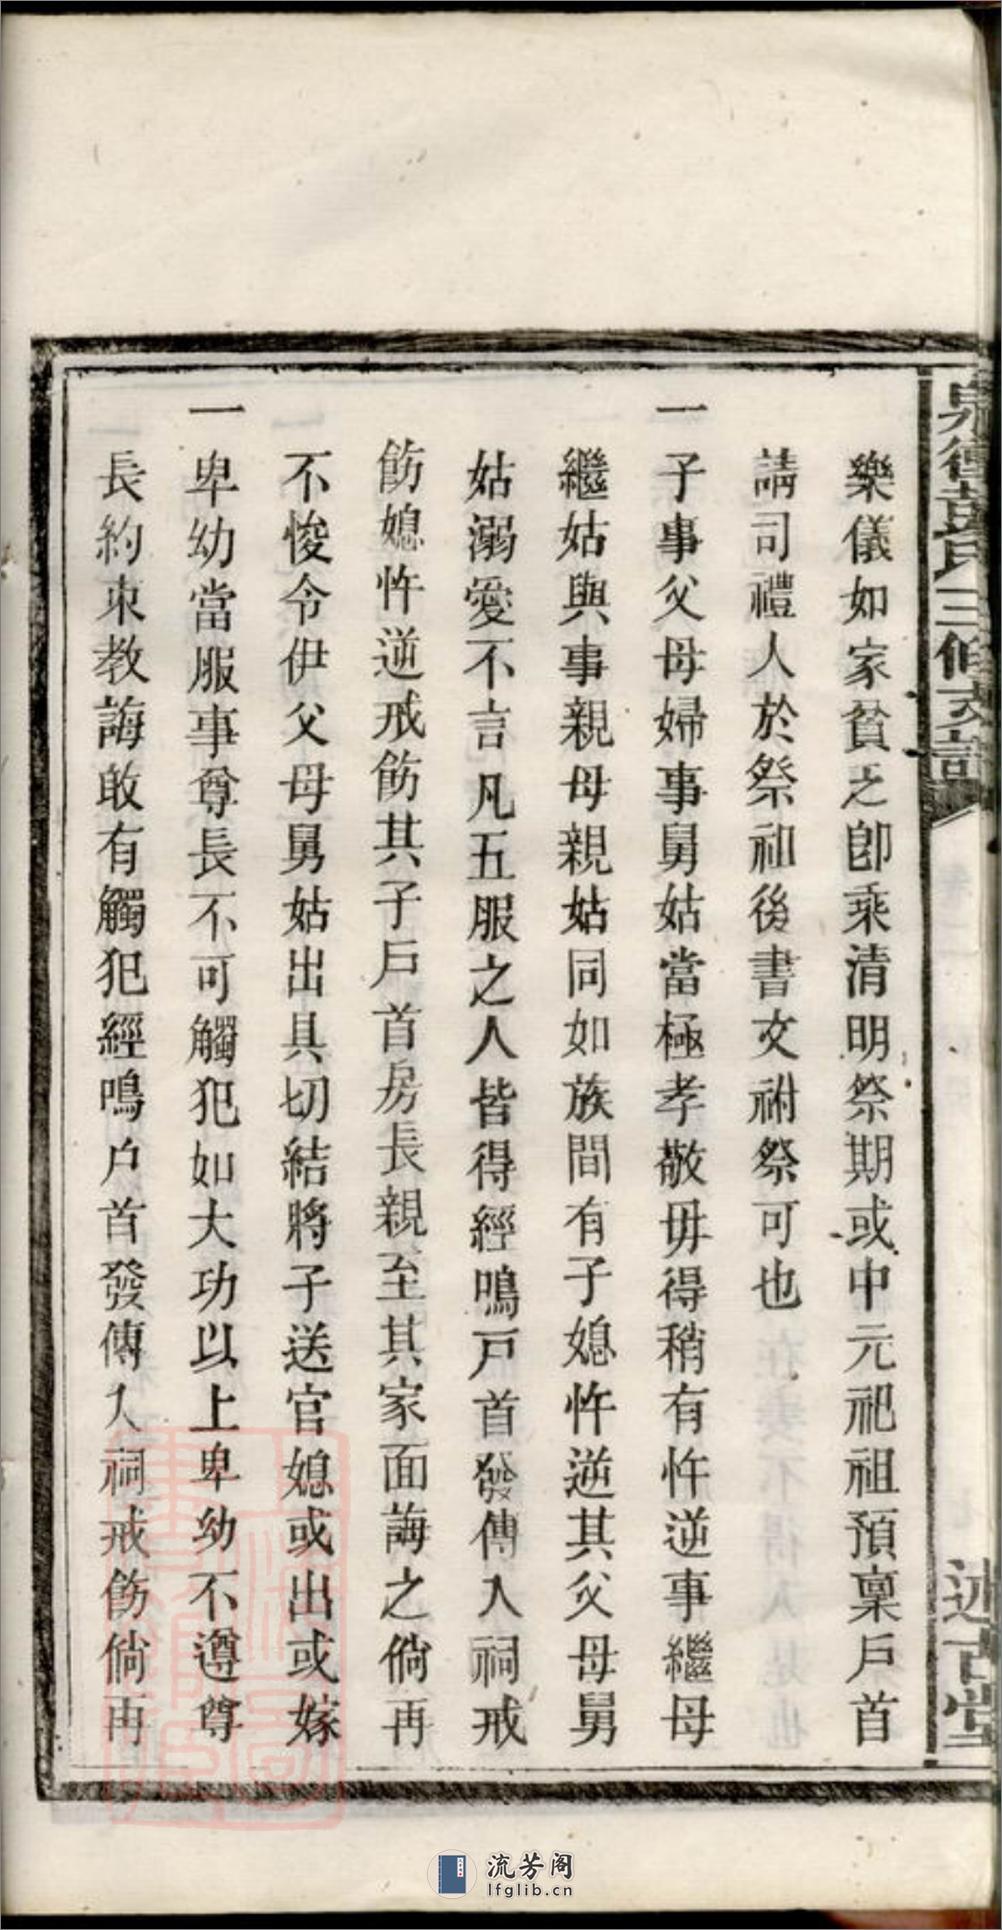 樂儀如家貧乏卽乘清明祭期或中元祀祖預稟戶首
請司禮人於祭祖後書文祔祭可也
一子事父母婦事舅姑當極孝敬毋得稍有忤逆事繼母
繼姑與事親母親姑同如族間有子媳忤逆其父母舅
姑溺愛不言凡五服之人皆得經鳴戶首發傳入祠戒
飭媳忤逆戒飭其子戶首房長親至其家面誨之倘再
不悛令伊父母舅姑出具切結將子送官媳或出或嫁
一卑幼當服事尊長不可觸犯如大功以上卑幼不遵尊
長約束教誨敢有觸犯經鳴戶首發傳入祠戒飭倘再
彭氏三修支譜
述古堂
流芳阁
lfglib.cn